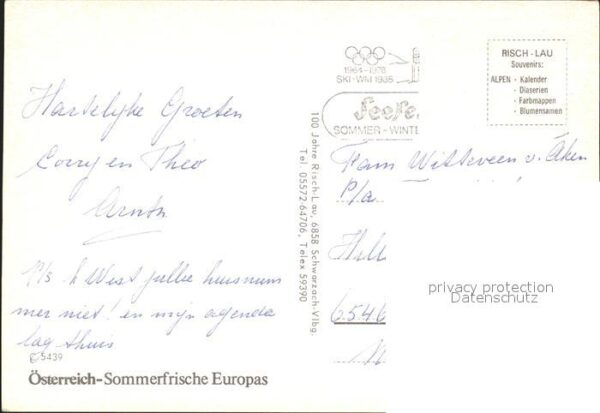 Hartelijke Groeten
Corry en Theo
P/s k Wist jullie huisnum
mer niet! en mijn agenda
lag thuis
C 5439
Österreich-Sommerfrische Europas
100 Jahre Risch-Lau, 6858 Schwarzach-Vlbg.
Tel. 05572-64706, Telex 59390
1964-1976
SKI-WM 1985
Seefe
SOMMER-WINT
RISCH-LAU
Souvenirs:
ALPEN - Kalender
- Diaserien
- Farbmappen
- Blumensamen
Fam Witteveen v. Aken
P/a
6546
privacy protection
Datenschutz